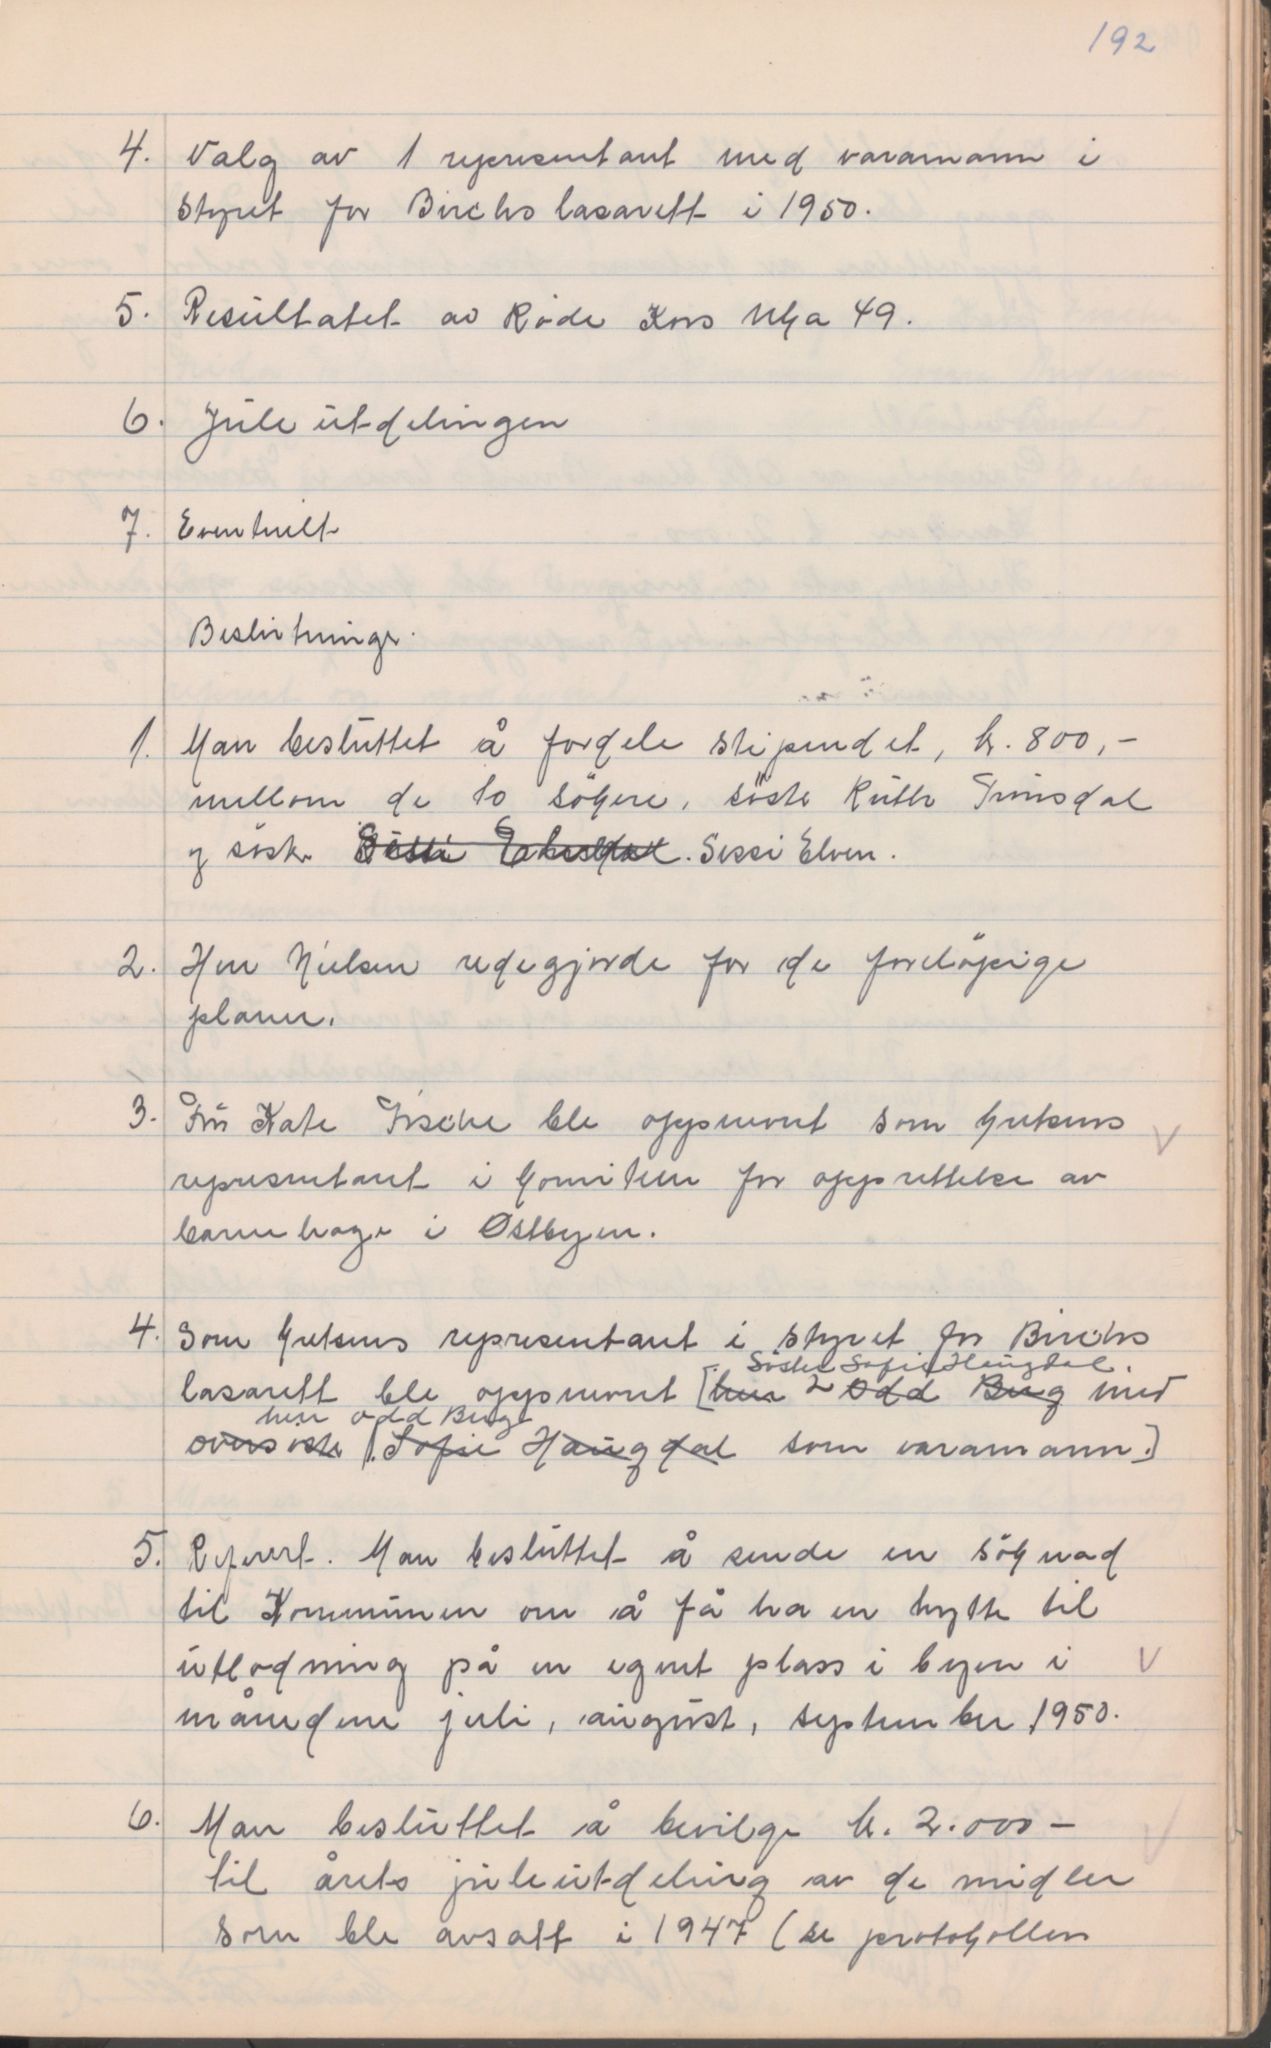 192
4. Valg av 1 representant med varamann i
styret for Birchs lasarett i 1950.
5. Resultatet av Røde Kors Uka 49.
6. Juleutdelingen
7. Eventuelt
Beslutninger.
1. Man besluttet å fordele stipendet, kr. 800,-
mellom de to søkere, søster Ruth
og søster Sissi Elven.
2. Herr Nielsen redegjorde for de foreløpige
planer.
3. Fru Kate Fische ble oppnevnt som kretsens
representant i komiteen for opprettelse av
barnehage i Østbyen.
4. Som kretsens representant i styret for Birchs
Søster Sofie Haugdal.
lasarett ble oppnevnt [herr Odd Berg med
herr Odd Berg
oversøster [Sofie Haugdal som varamann.]
5. Referert. Man besluttet å sende en søknad
til Kommunen om å få ha en hytte til
utlodning på en egnet plass i byen i
månedene juli, august, september 1950.
6. Man besluttet å bevilge kr. 2.000 -
til årets juleutdeling av de midler
som ble avsatt i 1947 (se protokollen